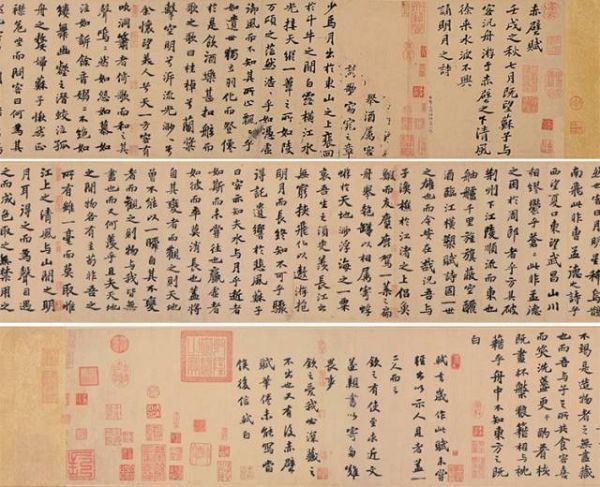 赤壁賦
壬戌之秋七月既望蘇子與
客泛舟游于赤壁之下清風
徐來水波不興
誦明月之詩
舉酒屬客
窈窕之章
少焉月出於東山之上裵回
於斗牛之間白露橫江水
光接天縱一葦之所如陵
萬頃之茫然浩浩乎如馮虛
御風而不知其所止飄飄乎
如遺世獨立羽化而登僊
於是飲酒樂甚扣舷而
歌之歌曰桂棹兮蘭槳
擊空明兮泝流光渺渺兮
余懷望美人兮天一方客有
吹洞簫者倚歌而和之其
聲嗚嗚然如怨如慕如
泣如訴餘音嫋嫋不絕如
縷舞幽壑之潛蛟泣孤
舟之嫠婦蘇子愀然正
襟危坐而問客曰何為其
南飛此非曹孟德之詩乎
西望夏口東望武昌山川
相繆鬱乎蒼蒼此非孟德
之困於周郎者乎方其破
荊州下江陵順流而東也
舳艫千里旌旗蔽空釃
酒臨江橫槊賦詩固一世
之雄也而今安在哉況吾與
子漁樵於江渚之上侶魚
鰕而友麋鹿駕一葉之扁
舟舉匏樽以相屬寄蜉
蝣於天地渺浮海之一粟
哀吾生之須臾羨長江
之無窮挾飛仙以遨遊抱
明月而長終知不可乎驟
得託遺響於悲風蘇子
曰客亦知夫水與月乎逝者
如斯而未嘗往也贏虛者
如彼而卒莫消長也蓋將
自其變者而觀之則天地
曾不能以一瞬自其不變
者而觀之則物與我皆無
盡也而又何羨乎且夫天地
之間物各有主苟非吾之
所有雖一毫而莫取惟
江上之清風與山間之明
月耳得之而為聲目遇
之而成色取之無禁用之
不竭是造物者之無盡藏
也而吾與子之所共食客喜
而笑洗盞更酌肴核
既盡杯盤狼籍相與枕
藉乎舟中不知東方之既
白
軾去歲作此賦未嘗
輕出以示人見者蓋一
二人而已
欽之有使至求近文
遂親書以寄多難
畏事
欽之愛我必深藏之
不出也又有後赤壁
賦筆倦未能寫當
俟後信軾白